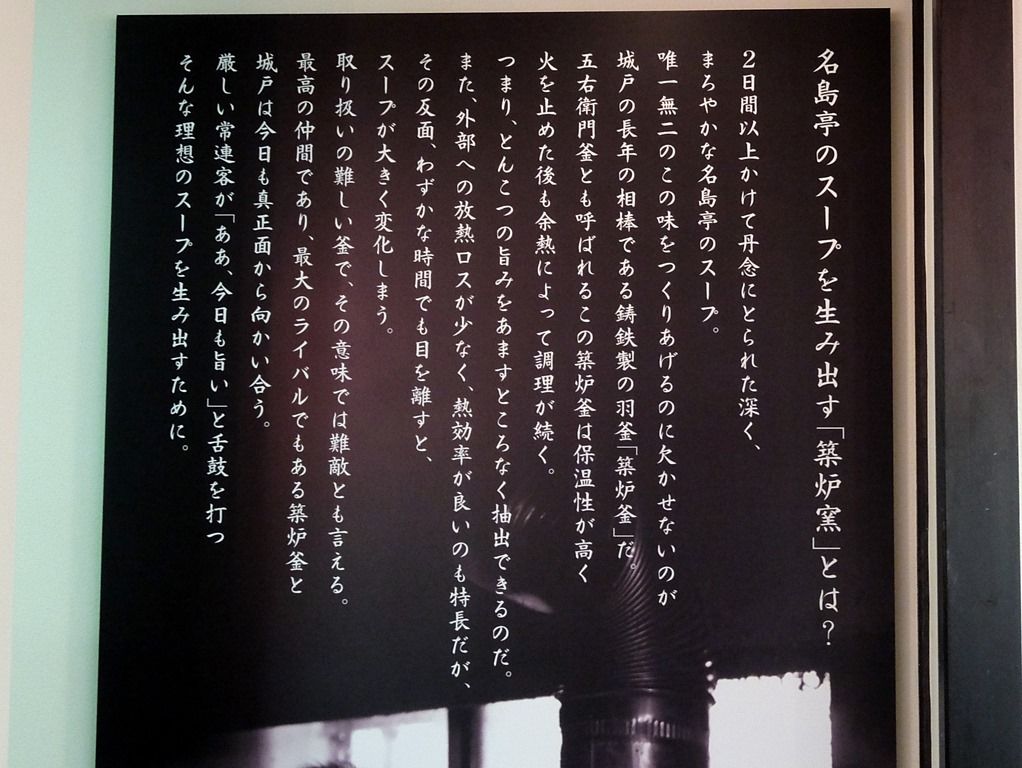 名島亭のスープを生み出す「築炉窯」とは?
2日間以上かけて丹念にとられた深く、
まろやかな名島亭のスープ。
唯一無二のこの味をつくりあげるのに欠かせないのが
城戸の長年の相棒である鋳鉄製の羽釜「築炉釜」だ。
五右衛門釜とも呼ばれるこの築炉釜は保温性が高く
火を止めた後も余熱によって調理が続く。
つまり、とんこつの旨みをあますところなく抽出できるのだ。
また、外部への放熱ロスが少なく、熱効率が良いのも特長だが、
その反面、わずかな時間でも目を離すと、
スープが大きく変化しまう。
取り扱いの難しい釜で、その意味では難敵とも言える。
最高の仲間であり、最大のライバルでもある築炉釜と
城戸は今日も真正面から向かい合う。
厳しい常連客が「ああ、今日も旨い」と舌鼓を打つ
そんな理想のスープを生み出すために。